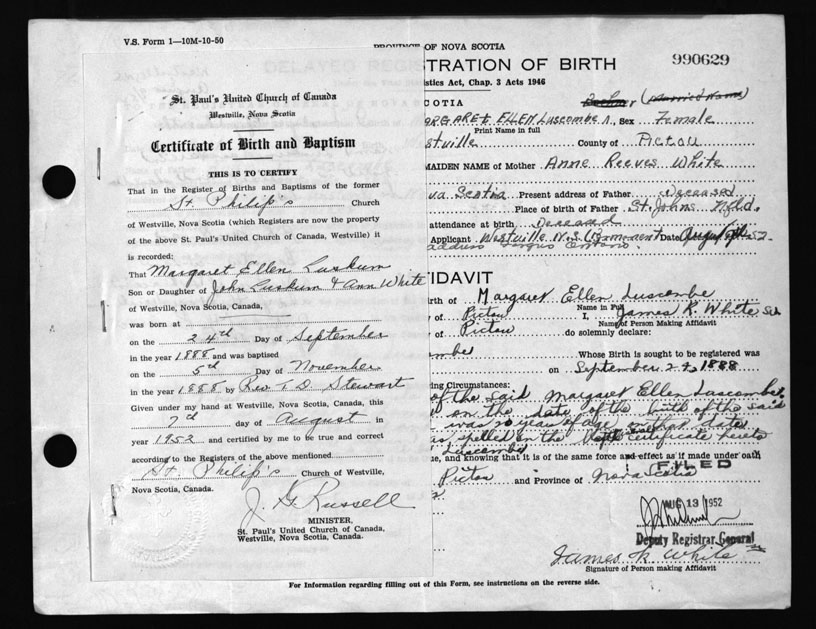 V.S. Form 1—10M-10-50
PROVINCE OF NOVA SCOTIA
DELAYED REGISTRATION OF BIRTH
990629
istics Act, Chap. 3 Acts 1946
St. Paul's United Church of Canada
Westville, Nova Scotia
Certificate of Birth and Baptism
THIS IS TO CERTIFY
That in the Register of Births and Baptisms of the former
St. Philip's Church
of Westville, Nova Scotia (which Registers are now the property
of the above St. Paul's United Church of Canada, Westville) it
is recorded:
That Margaret Ellen Luskum
Son or Daughter of John Luskum & Ann White
of Westville, Nova Scotia, Canada,
was born at
on the 24th Day of September
in the year 1888 and was baptised
on the 5th Day of November
in the year 1888 by Rev T. D. Stewart
Given under my hand at Westville, Nova Scotia, Canada, this
7th day of August in
year 1952 and certified by me to be true and correct
according to the Registers of the above mentioned
St. Philip's Church of Westville,
Nova Scotia, Canada.
J. G. Russell
MINISTER,
St. Paul's United Church of Canada,
Westville, Nova Scotia, Canada.
SCOTIA (Married Name)
ARGARET ELLEN Luscombe Sex Female
Print Name in full
estville County of Pictou
MAIDEN NAME of Mother Anne Reeves White
va Scotia Present address of Father Deceased
Place of birth of Father St. Johns Nfld.
attendance at birth Deceased
Applicant Westville N.S. Date
address Fergus Ontario.
FIDAVIT
Birth of Margaret Ellen Luscombe
of Pictou I, James R. White
Name of Person Making Affidavit
of Pictou do solemnly declare:
mbe Whose Birth is sought to be registered was
on September 24, 1888
ing Circumstances:
of the said Margaret Ellen Luscombe
on the date of the birth of the said
was 10 years of age that date
as spelled on the certificate
Luscombe
ue, and knowing that it is of the same force and effect as if made under oath
Pictou and Province of Nova Scotia
FILED
AUG 13 1952
Deputy Registrar General
James R. White
Signature of Person making Affidavit
For Information regarding filling out of this Form, see instructions on the reverse side.